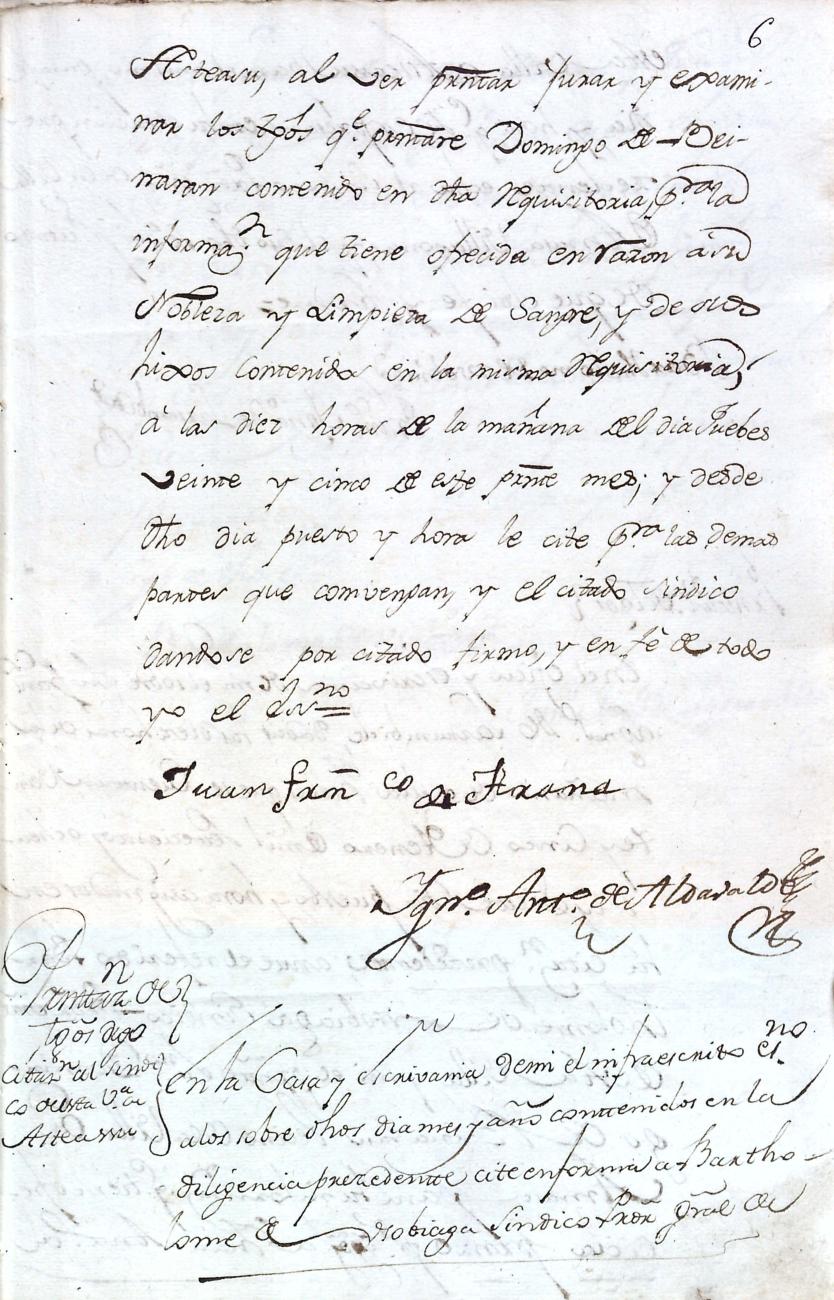 6
Asteasu, al ver prntar Jurar y exami-
nar los tgos q.e prntare Domingo de Bei-
naran contenido en dha Requisitoria, p.ra la
informaz.n que tiene ofrecida en razon a su
Nobleza y Limpieza de Sangre, y de sus
hixos Contenidos en la misma Requisitoria,
à las diez horas de la mañana del dia Juebes
veinte y cinco de este prnte mes; y desde
dho dia puesto y hora le cite p.ra las demas
partes que combengan, y el citado sindico
dandose por citado firmo, y en fè de todo
yo el ssno
Juan frn co de Arana
Ygn.o Ant.o de Aldavalde
Prntaz.n de
tgos
citaz.n al sindi
co de esta V.a de
Asteassu
En la Casa y escrivania de mi el infraescrito es.no
a los sobre dhos dia mes y año conttenidos en la
diligencia prezedentte cite en forma a Bartho-
lome de sobiaga sindico Prdr gral de